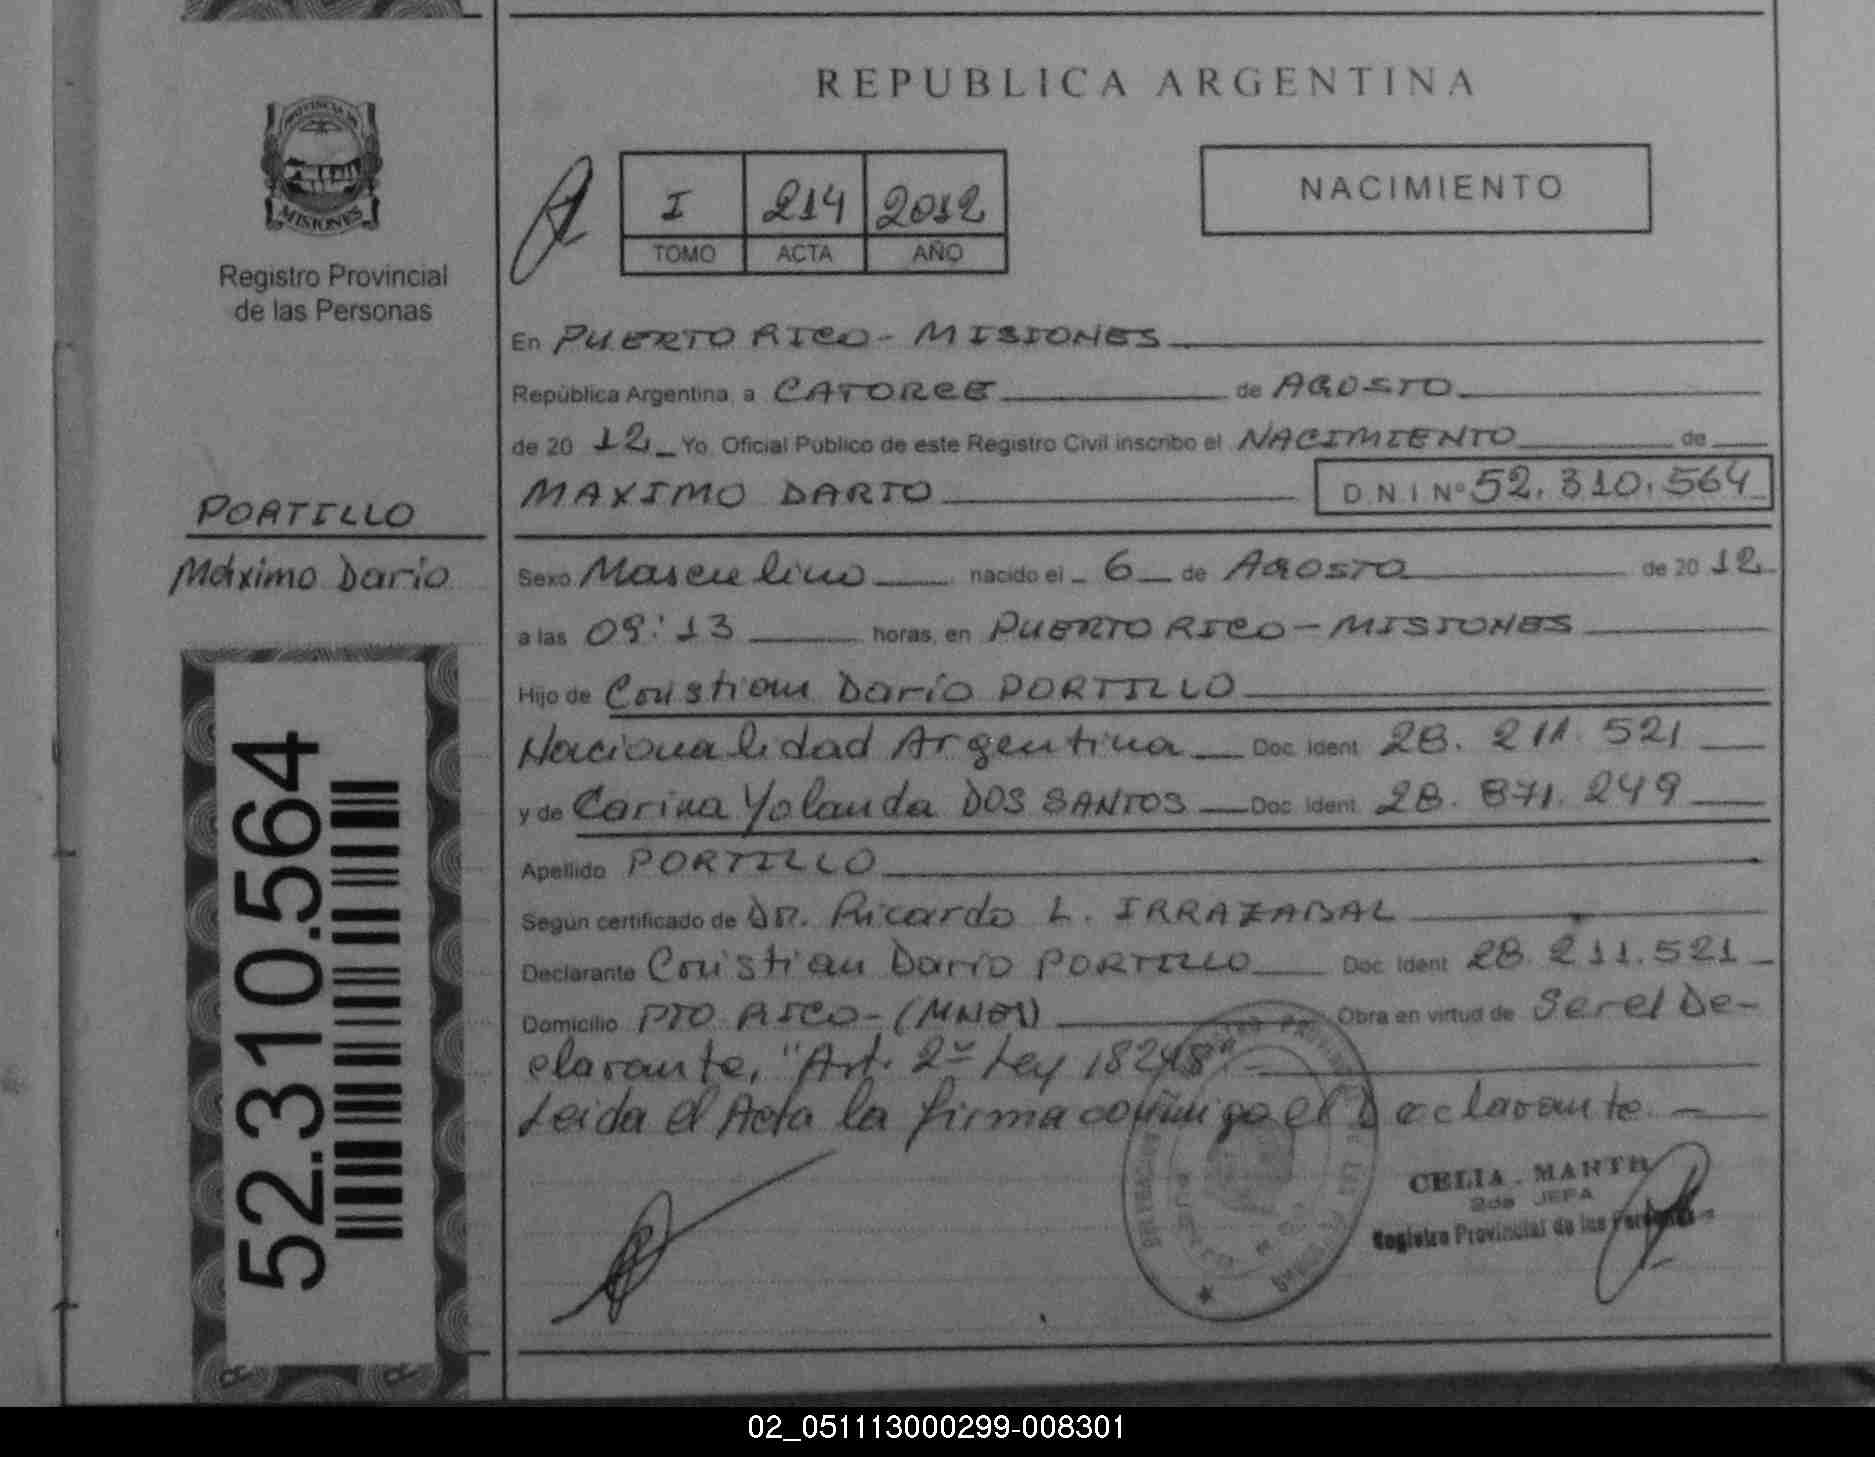 PROVINCIA DE
MISIONES
Registro Provincial
de las Personas
PORTILLO
Máximo Darío
52.310.564
REPUBLICA ARGENTINA
I 214 2012
TOMO ACTA AÑO
NACIMIENTO
En PUERTO RICO - MISIONES
República Argentina, a CATORCE de AGOSTO
de 20 12 Yo, Oficial Público de este Registro Civil inscribo el NACIMIENTO de
MAXIMO DARIO D.N.I. Nº 52.310.564
Sexo Masculino nacido el 6 de AGOSTO de 20 12
a las 09:13 horas, en PUERTO RICO - MISIONES
Hijo de Cristian Darío PORTILLO
Nacionalidad Argentina Doc. Ident. 28.211.521
y de Carina Yolanda DOS SANTOS Doc. Ident. 28.871.249
Apellido PORTILLO
Según certificado de DR. Ricardo L. IRRAZABAL
Declarante Cristian Darío PORTILLO Doc. Ident. 28.211.521
Domicilio PTO RICO - (MNES) Obra en virtud de Ser el De-
clarante, "Art. 2º Ley 18248" -
Leida el Acta la firma conmigo el Declarante -
CELIA MARTH
2da JEFA
Registro Provincial de las Personas
02_051113000299-008301